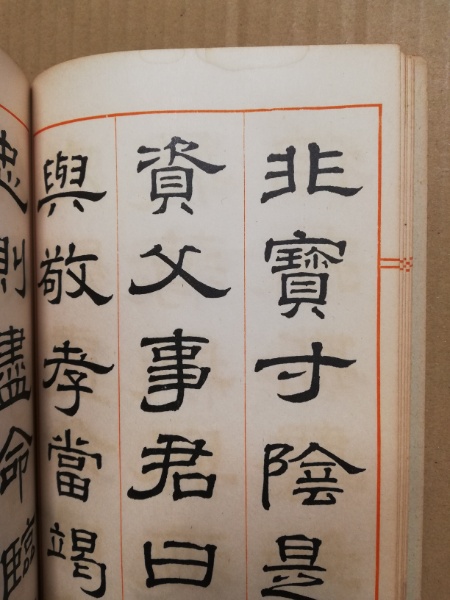 非寶寸陰是
資父事君曰
與敬孝當竭
忠則盡命臨